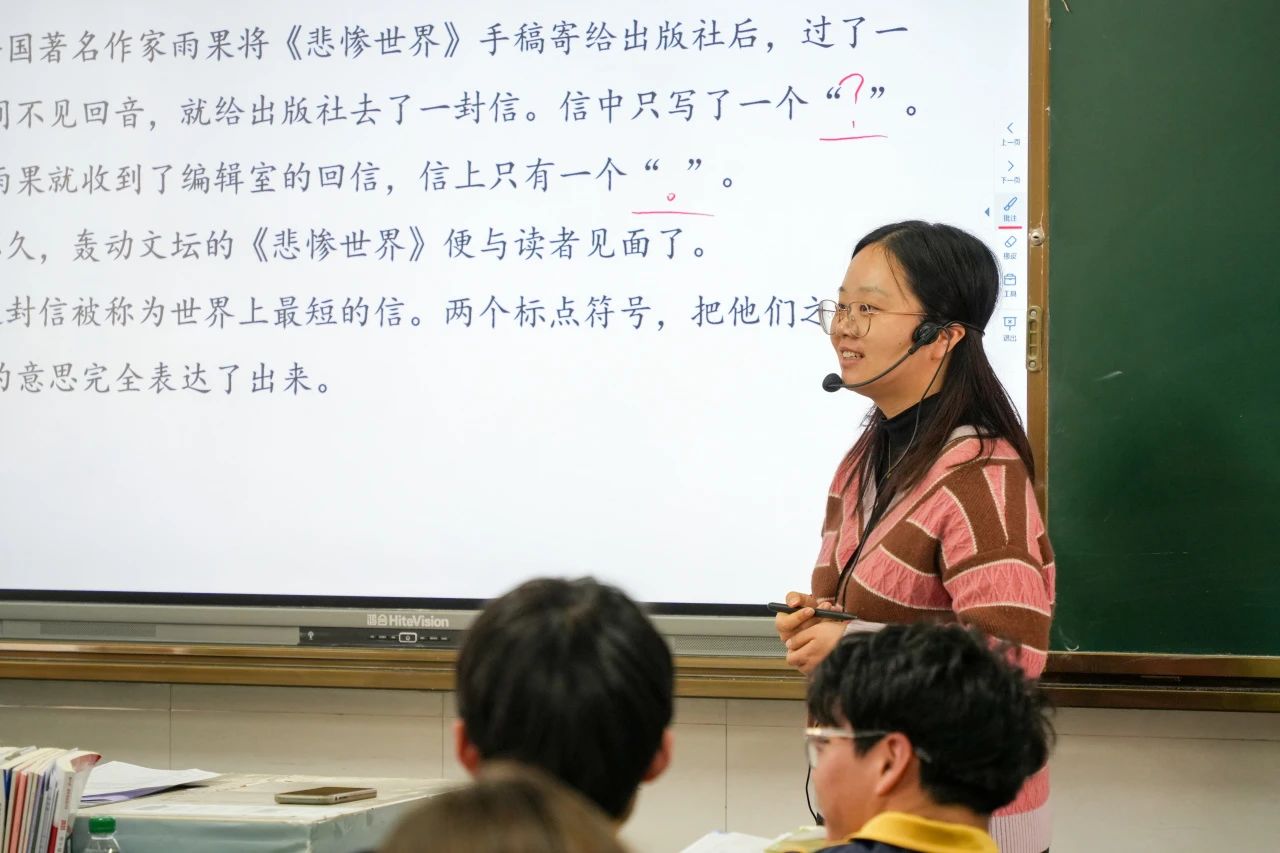 国著名作家雨果将《悲惨世界》手稿寄给出版社后，过了一
不见回音，就给出版社去了一封信。信中只写了一个“？”。
果就收到了编辑室的回信，信上只有一个“。”。
久，轰动文坛的《悲惨世界》便与读者见面了。
封信被称为世界上最短的信。两个标点符号，把他们之
的意思完全表达了出来。
上一页
下一页
批注
橡皮
工具
退出
鸿合HiteVision